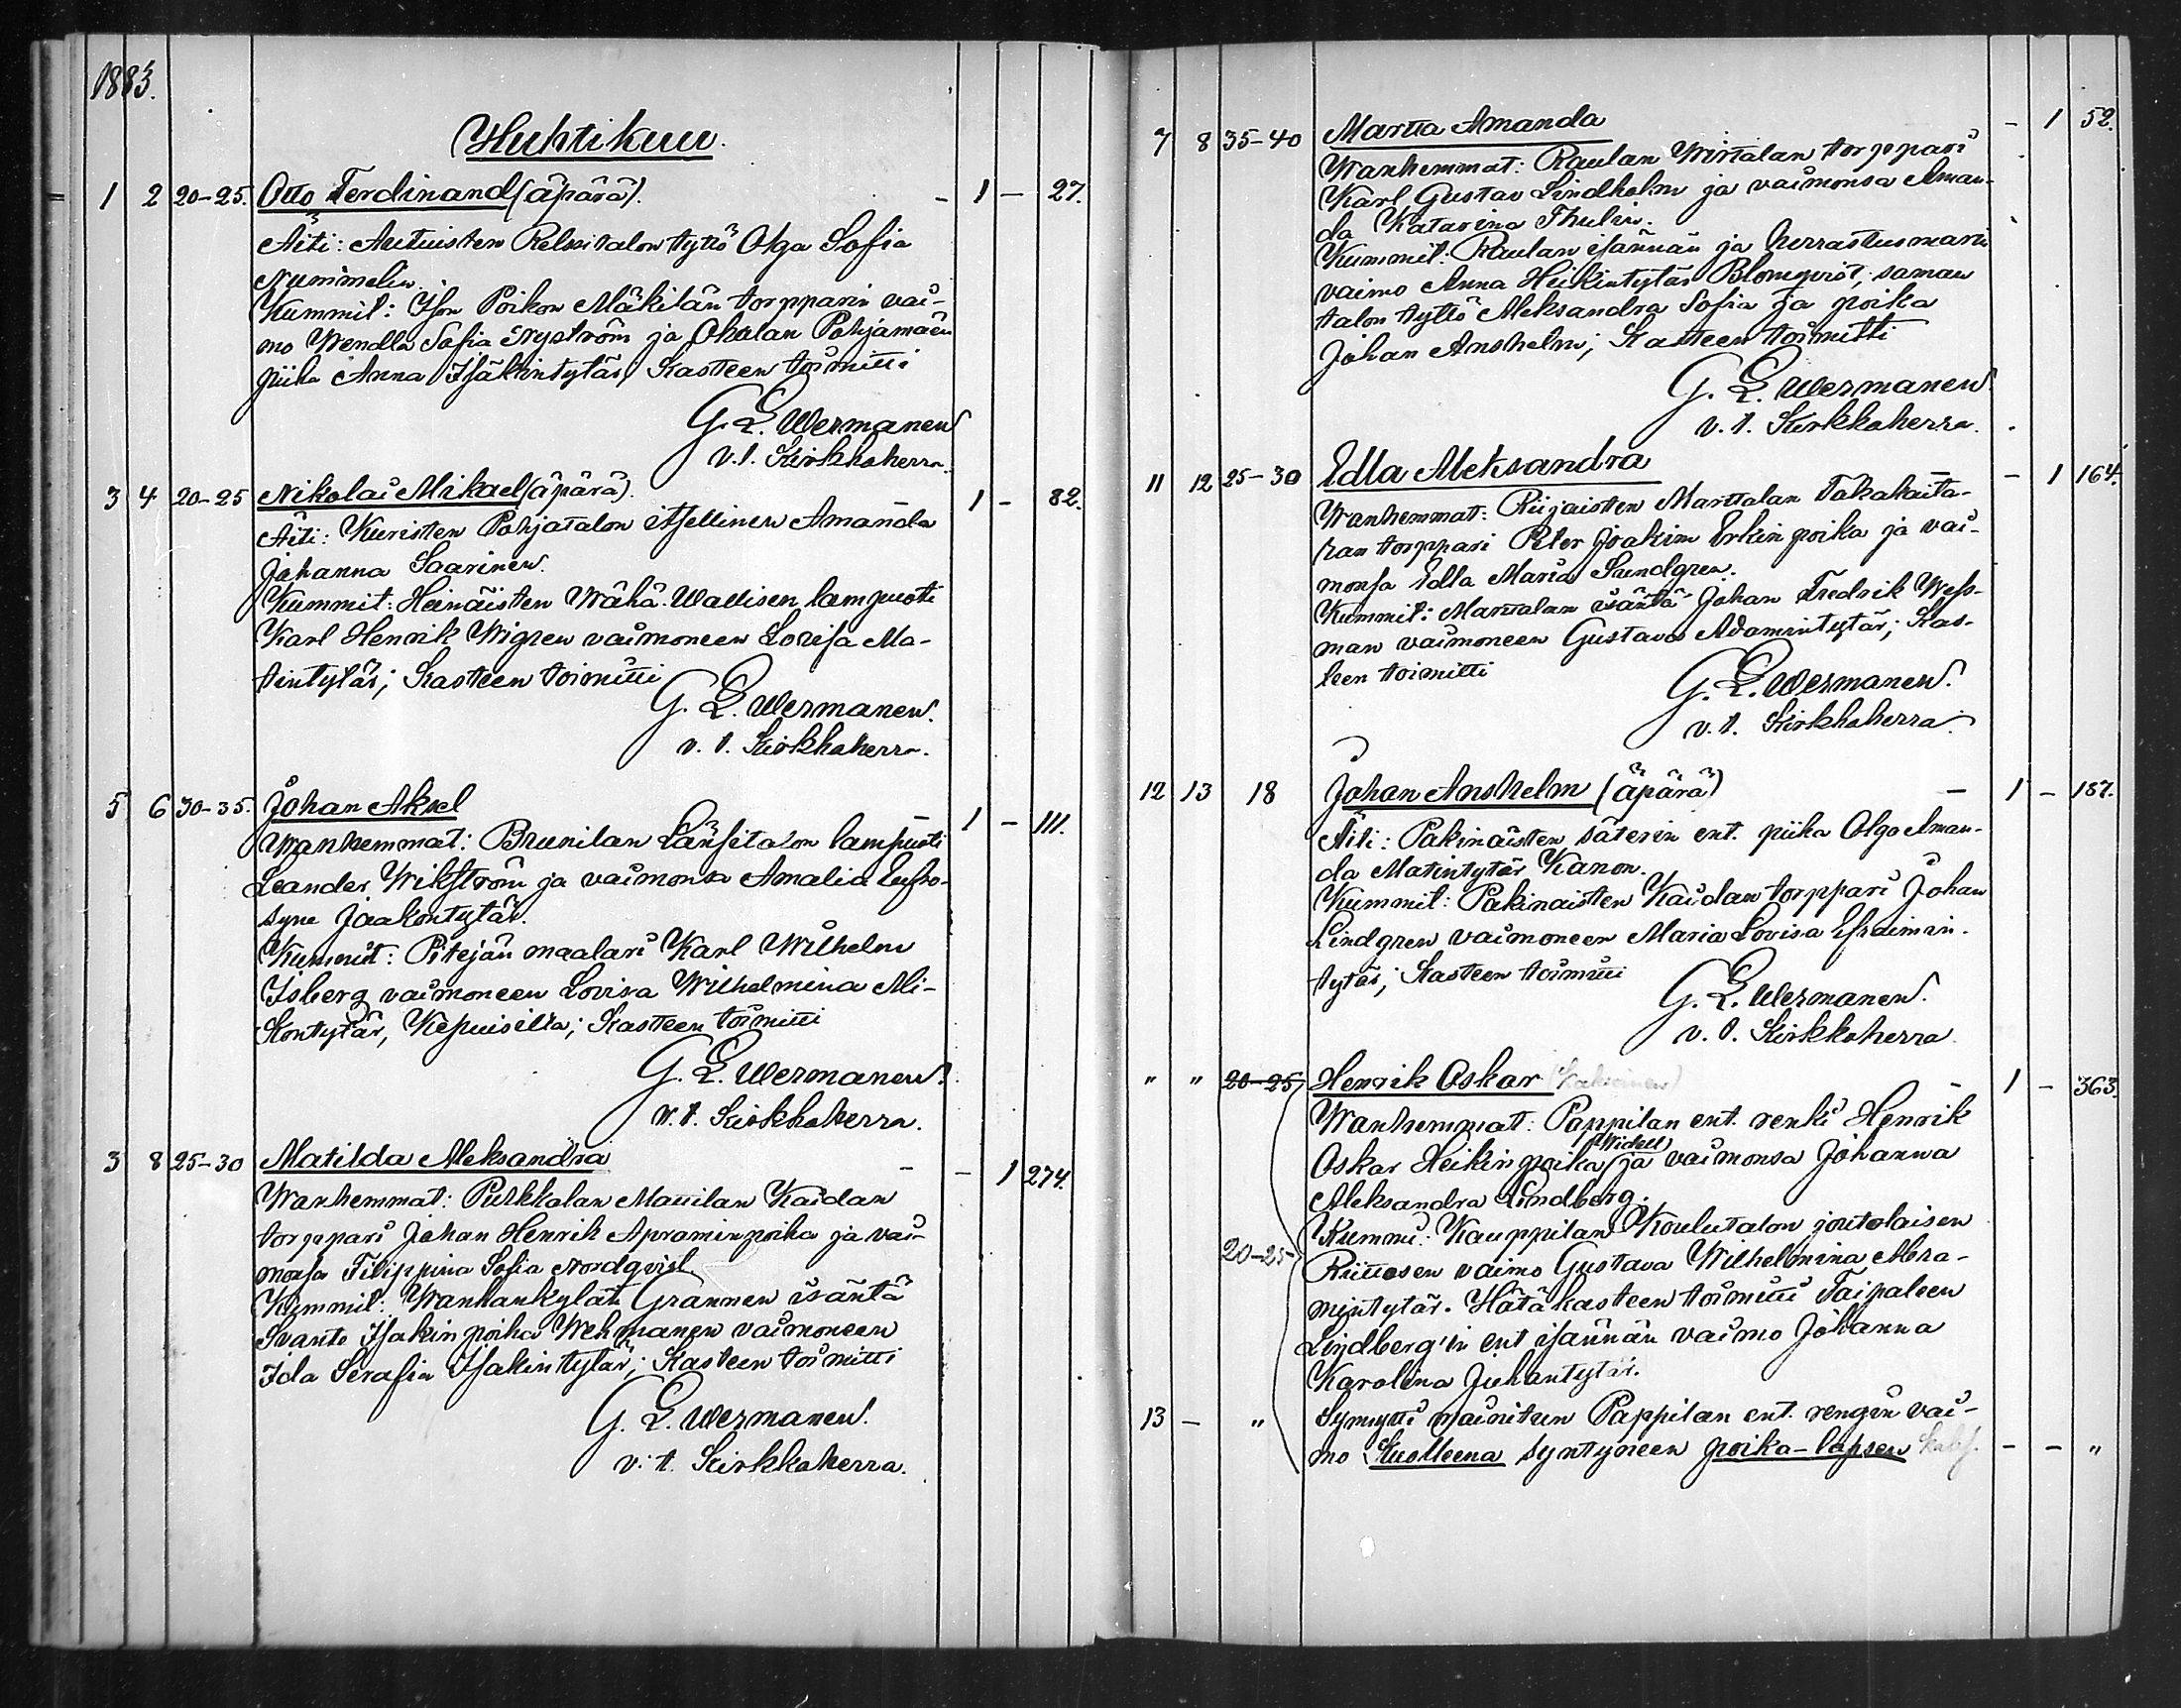 1883.
Huhtikuu.
1 2 20-25. Otto Ferdinand (äpärä). - 1 - 27.
Äiti: Autuisten talon tyttö Olga Sofia
Nummelin.
Kummit: Ison Poikon Mäkilän torpparin vai-
mo Wendla Sofia Nyström ja Ohalan Pohjamäen
piika Anna Isakintytär; Kasteen toimitti
G. L. Wermanen
v.t. Kirkkoherra.
3 4 20-25 Nikolai Mikael (äpärä). 1 - 82.
Äiti: Kuristen Pohjatalon itsellinen Amanda
Johanna Saarinen.
Kummit: Heinäisten Wähä-Wallisen lampuoti
Karl Henrik Wigren vaimoneen Lovisa Ma-
tintytär; Kasteen toimitti
G. L. Wermanen.
v. t. Kirkkoherra.
5 6 30-35. Johan Aksel 1 - 111.
Wanhemmat: Brunilan Länsitalon lampuoti
Leander Wikström ja vaimonsa Amalia Eufro-
syne Jaakontytär.
Kummit: Pitäjän maalari Karl Wilhelm
Isberg vaimoneen Lovisa Wilhelmina Mi-
kontytär, Kepuisilta; Kasteen toimitti
G. L. Wermanen.
v. t. Kirkkoherra.
3 8 25-30 Matilda Aleksandra - - 1 274.
Wanhemmat: Puhkalan Mattilan Kaidan
torppari Johan Henrik Apraminpoika ja vai-
monsa Filippina Sofia Nordqvist
Kummit: Wanhankylän Grannen isäntä
Svante Isakinpoika Wehmanen vaimoneen
Ida Serafia Isakintytär; Kasteen toimitti
G. L. Wermanen.
v. t. Kirkkoherra.
7 8 35-40 Martta Amanda - 1 52.
Wanhemmat: Raulan Wirtalan torppari
Karl Gustav Lindholm ja vaimonsa Aman-
da Katarina Thulin.
Kummit: Raulan isännän ja herrastusmanni
vaimo Anna Heikintytär Blomqvist; saman
talon tyttö Aleksandra Sofia ja poika
Johan Anshelm; Kasteen toimitti
G. L. Wermanen
v. t. Kirkkoherra.
11 12 25-30 Edla Aleksandra - 1 164.
Wanhemmat: Riijaisten Marttalan Takahaita-
ran torppari Peter Joakim Erkinpoika ja vai-
monsa Edla Maria Sundgren.
Kummit: Marttalan isäntä Johan Fredrik Wess-
man vaimoneen Gustava Adamintytär; Kas-
teen toimitti
G. L. Wermanen.
v. t. Kirkkoherra.
12 13 18 Johan Anshelm (äpärä) - 1 - 187.
Äiti: Pakinaisten säterin ent. piika Olga Aman-
da Matintytär Kanon.
Kummit: Pakinaisten Kaidan torppari Johan
Lindgren vaimoneen Maria Lovisa Efraimin-
tytär; Kasteen toimitti
G. L. Wermanen.
v. t. Kirkkoherra.
" " 20-25 Henrik Oskar (kaksoinen) 1 - 363.
Wanhemmat: Pappilan ent. renki Henrik
Oskar Heikinpoika (Widell) ja vaimonsa Johanna
Aleksandra Lindberg.
Kummi: Kauppilan Koulutalon joutolaisen
20-25 Riittosen vaimo Gustava Wilhelmina Abra-
mintytär. Hätäkasteen toimitti Taipaleen
Lindberg'in ent isännän vaimo Johanna
Karolina Juhantytär.
13 - " Synnytti mainitun Pappilan ent. rengin vai-
mo Kuolleena syntyneen poika-lapsen kaks. - - "